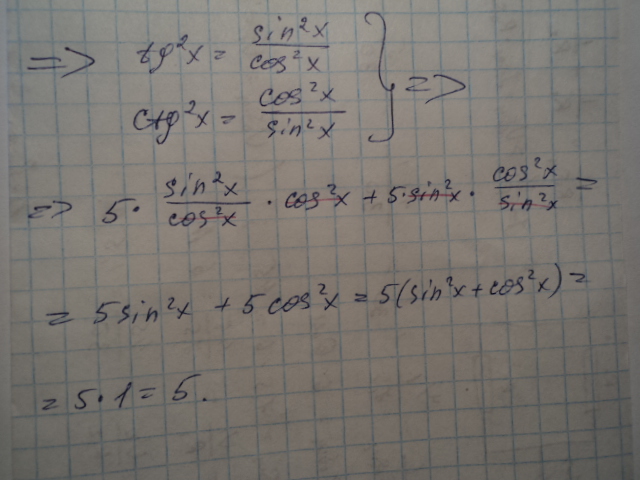 => tg²x = sin²x / cos²x
ctg²x = cos²x / sin²x } =>
=> 5 · sin²x / cos²x · cos²x + 5·sin²x · cos²x / sin²x =
= 5 sin²x + 5 cos²x = 5(sin²x + cos²x) =
= 5 · 1 = 5.